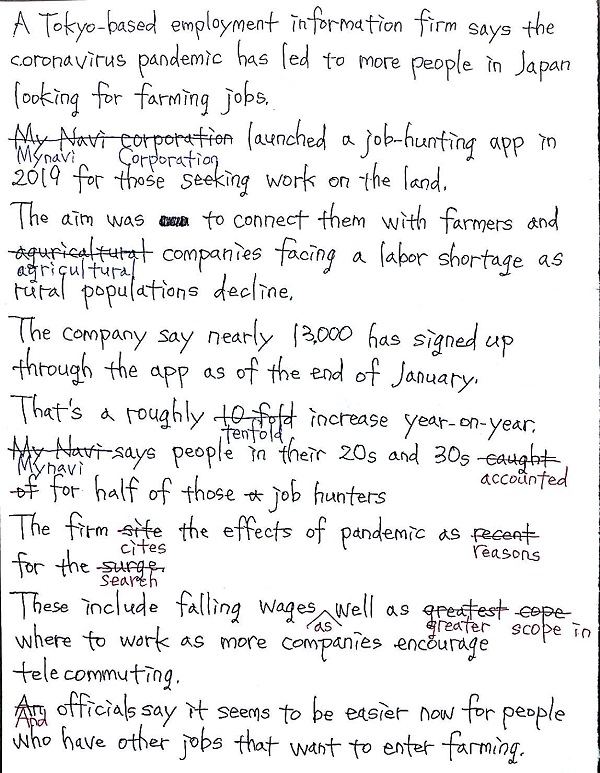 A Tokyo-based employment information firm says the
coronavirus pandemic has led to more people in Japan
looking for farming jobs.
My Navi corporation launched a job-hunting app in
Mynavi Corporation
2019 for those seeking work on the land.
The aim was to connect them with farmers and
aguricaltural companies facing a labor shortage as
agricultural
rural populations decline.
The company say nearly 13,000 has signed up
through the app as of the end of January.
That's a roughly 10-fold increase year-on-year.
tenfold
My Navi says people in their 20s and 30s caught
Mynavi accounted
of for half of those a job hunters
The firm site the effects of pandemic as recent
cites reasons
for the surge.
search
These include falling wages well as greatest cope
as greater scope in
where to work as more companies encourage
telecommuting.
An officials say it seems to be easier now for people
And
who have other jobs that want to enter farming.